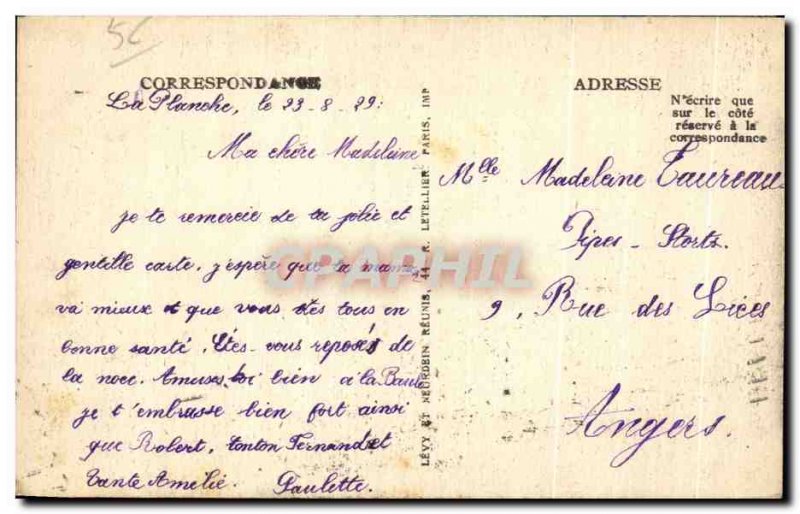 56
CORRESPONDANCE
ADRESSE
N'écrire que
sur le côté
réservé à la
correspondance
La Planche, le 23-8-29:
Ma chère Madeleine
je te remercie de ta jolie et
gentille carte, j'espère que ta maman
va mieux et que vous êtes tous en
bonne santé. Êtes-vous reposés de
la noce. Amuses-toi bien à la Baule
je t'embrasse bien fort ainsi
que Robert, tonton Fernand et
tante Amélie. Paulette.
LÉVY ET NEURDEIN RÉUNIS, 44, R. LETELLIER, PARIS, IMP
Mlle Madeleine Taureau
Pipes-Stortz.
9, Rue des Lices
Angers.
CPAPHIL